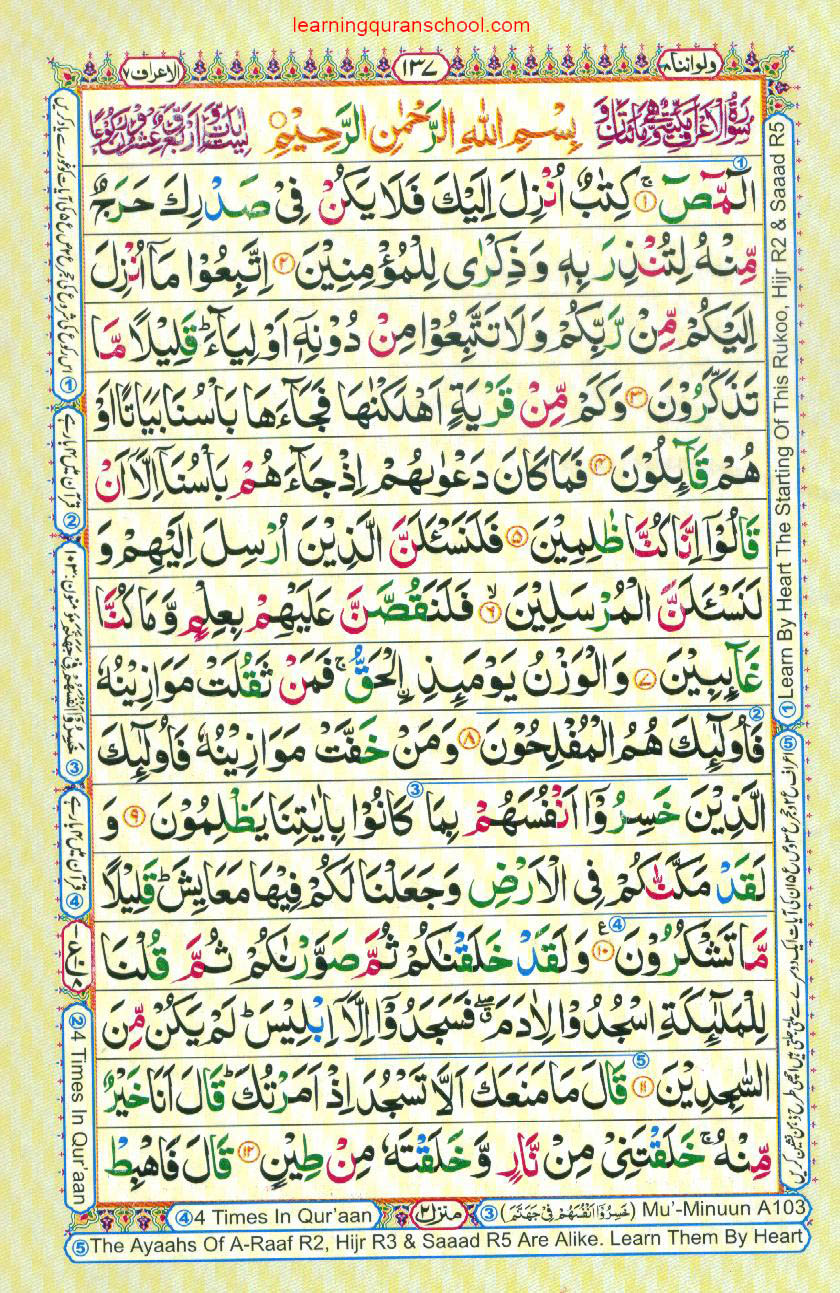 learningquranschool.com
ولواننا ۸
١٣٧
الاعراف ۷
بِسْمِ اللهِ الرَّحْمٰنِ الرَّحِيْمِ
الٓمّٓصٓ ۚ ١ كِتٰبٌ اُنْزِلَ اِلَيْكَ فَلَا يَكُنْ فِيْ صَدْرِكَ حَرَجٌ
مِّنْهُ لِتُنْذِرَ بِهٖ وَ ذِكْرٰى لِلْمُؤْمِنِيْنَ ٢ اِتَّبِعُوْا مَاۤ اُنْزِلَ
اِلَيْكُمْ مِّنْ رَّبِّكُمْ وَ لَا تَتَّبِعُوْا مِنْ دُوْنِهٖۤ اَوْلِيَآءَ ؕ قَلِيْلًا مَّا
تَذَكَّرُوْنَ ٣ وَ كَمْ مِّنْ قَرْيَةٍ اَهْلَكْنٰهَا فَجَآءَهَا بَاْسُنَا بَيَاتًا اَوْ
هُمْ قَآئِلُوْنَ ٤ فَمَا كَانَ دَعْوٰىهُمْ اِذْ جَآءَهُمْ بَاْسُنَاۤ اِلَّاۤ اَنْ
قَالُوْۤا اِنَّا كُنَّا ظٰلِمِيْنَ ٥ فَلَنَسْـَٔلَنَّ الَّذِيْنَ اُرْسِلَ اِلَيْهِمْ وَ
لَنَسْـَٔلَنَّ الْمُرْسَلِيْنَ ۙ ٦ فَلَنَقُصَّنَّ عَلَيْهِمْ بِعِلْمٍ وَّ مَا كُنَّا
غَآئِبِيْنَ ٧ وَ الْوَزْنُ يَوْمَئِذِ ِۨالْحَقُّ ۚ فَمَنْ ثَقُلَتْ مَوَازِيْنُهٗ
②
فَاُولٰٓئِكَ هُمُ الْمُفْلِحُوْنَ ٨ وَ مَنْ خَفَّتْ مَوَازِيْنُهٗ فَاُولٰٓئِكَ
③
الَّذِيْنَ خَسِرُوْۤا اَنْفُسَهُمْ بِمَا كَانُوْا بِاٰيٰتِنَا يَظْلِمُوْنَ ٩ وَ
لَقَدْ مَكَّنّٰكُمْ فِي الْاَرْضِ وَ جَعَلْنَا لَكُمْ فِيْهَا مَعَايِشَ ؕ قَلِيْلًا
④
مَّا تَشْكُرُوْنَ ١٠ ع وَ لَقَدْ خَلَقْنٰكُمْ ثُمَّ صَوَّرْنٰكُمْ ثُمَّ قُلْنَا
لِلْمَلٰٓئِكَةِ اسْجُدُوْا لِاٰدَمَ ۖۗ فَسَجَدُوْۤا اِلَّاۤ اِبْلِيْسَ ؕ لَمْ يَكُنْ مِّنَ
⑤
السّٰجِدِيْنَ ١١ قَالَ مَا مَنَعَكَ اَلَّا تَسْجُدَ اِذْ اَمَرْتُكَ ؕ قَالَ اَنَا خَيْرٌ
مِّنْهُ ۚ خَلَقْتَنِيْ مِنْ نَّارٍ وَّ خَلَقْتَهٗ مِنْ طِيْنٍ ١٢ قَالَ فَاهْبِطْ
① Learn By Heart The Starting Of This Rukoo, Hijr R2 & Saaad R5
② قرآن میں ۴ بارہے
④ قرآن میں ۴ بارہے
② 4 Times In Qur'aan
④ 4 Times In Qur'aan
منزل ۲
③ (خَسِرُوْۤا اَنْفُسَهُمْ فِيْ جَهَنَّمَ) Mu'-Minuun A103
⑤ The Ayaahs Of A-Raaf R2, Hijr R3 & Saaad R5 Are Alike. Learn Them By Heart